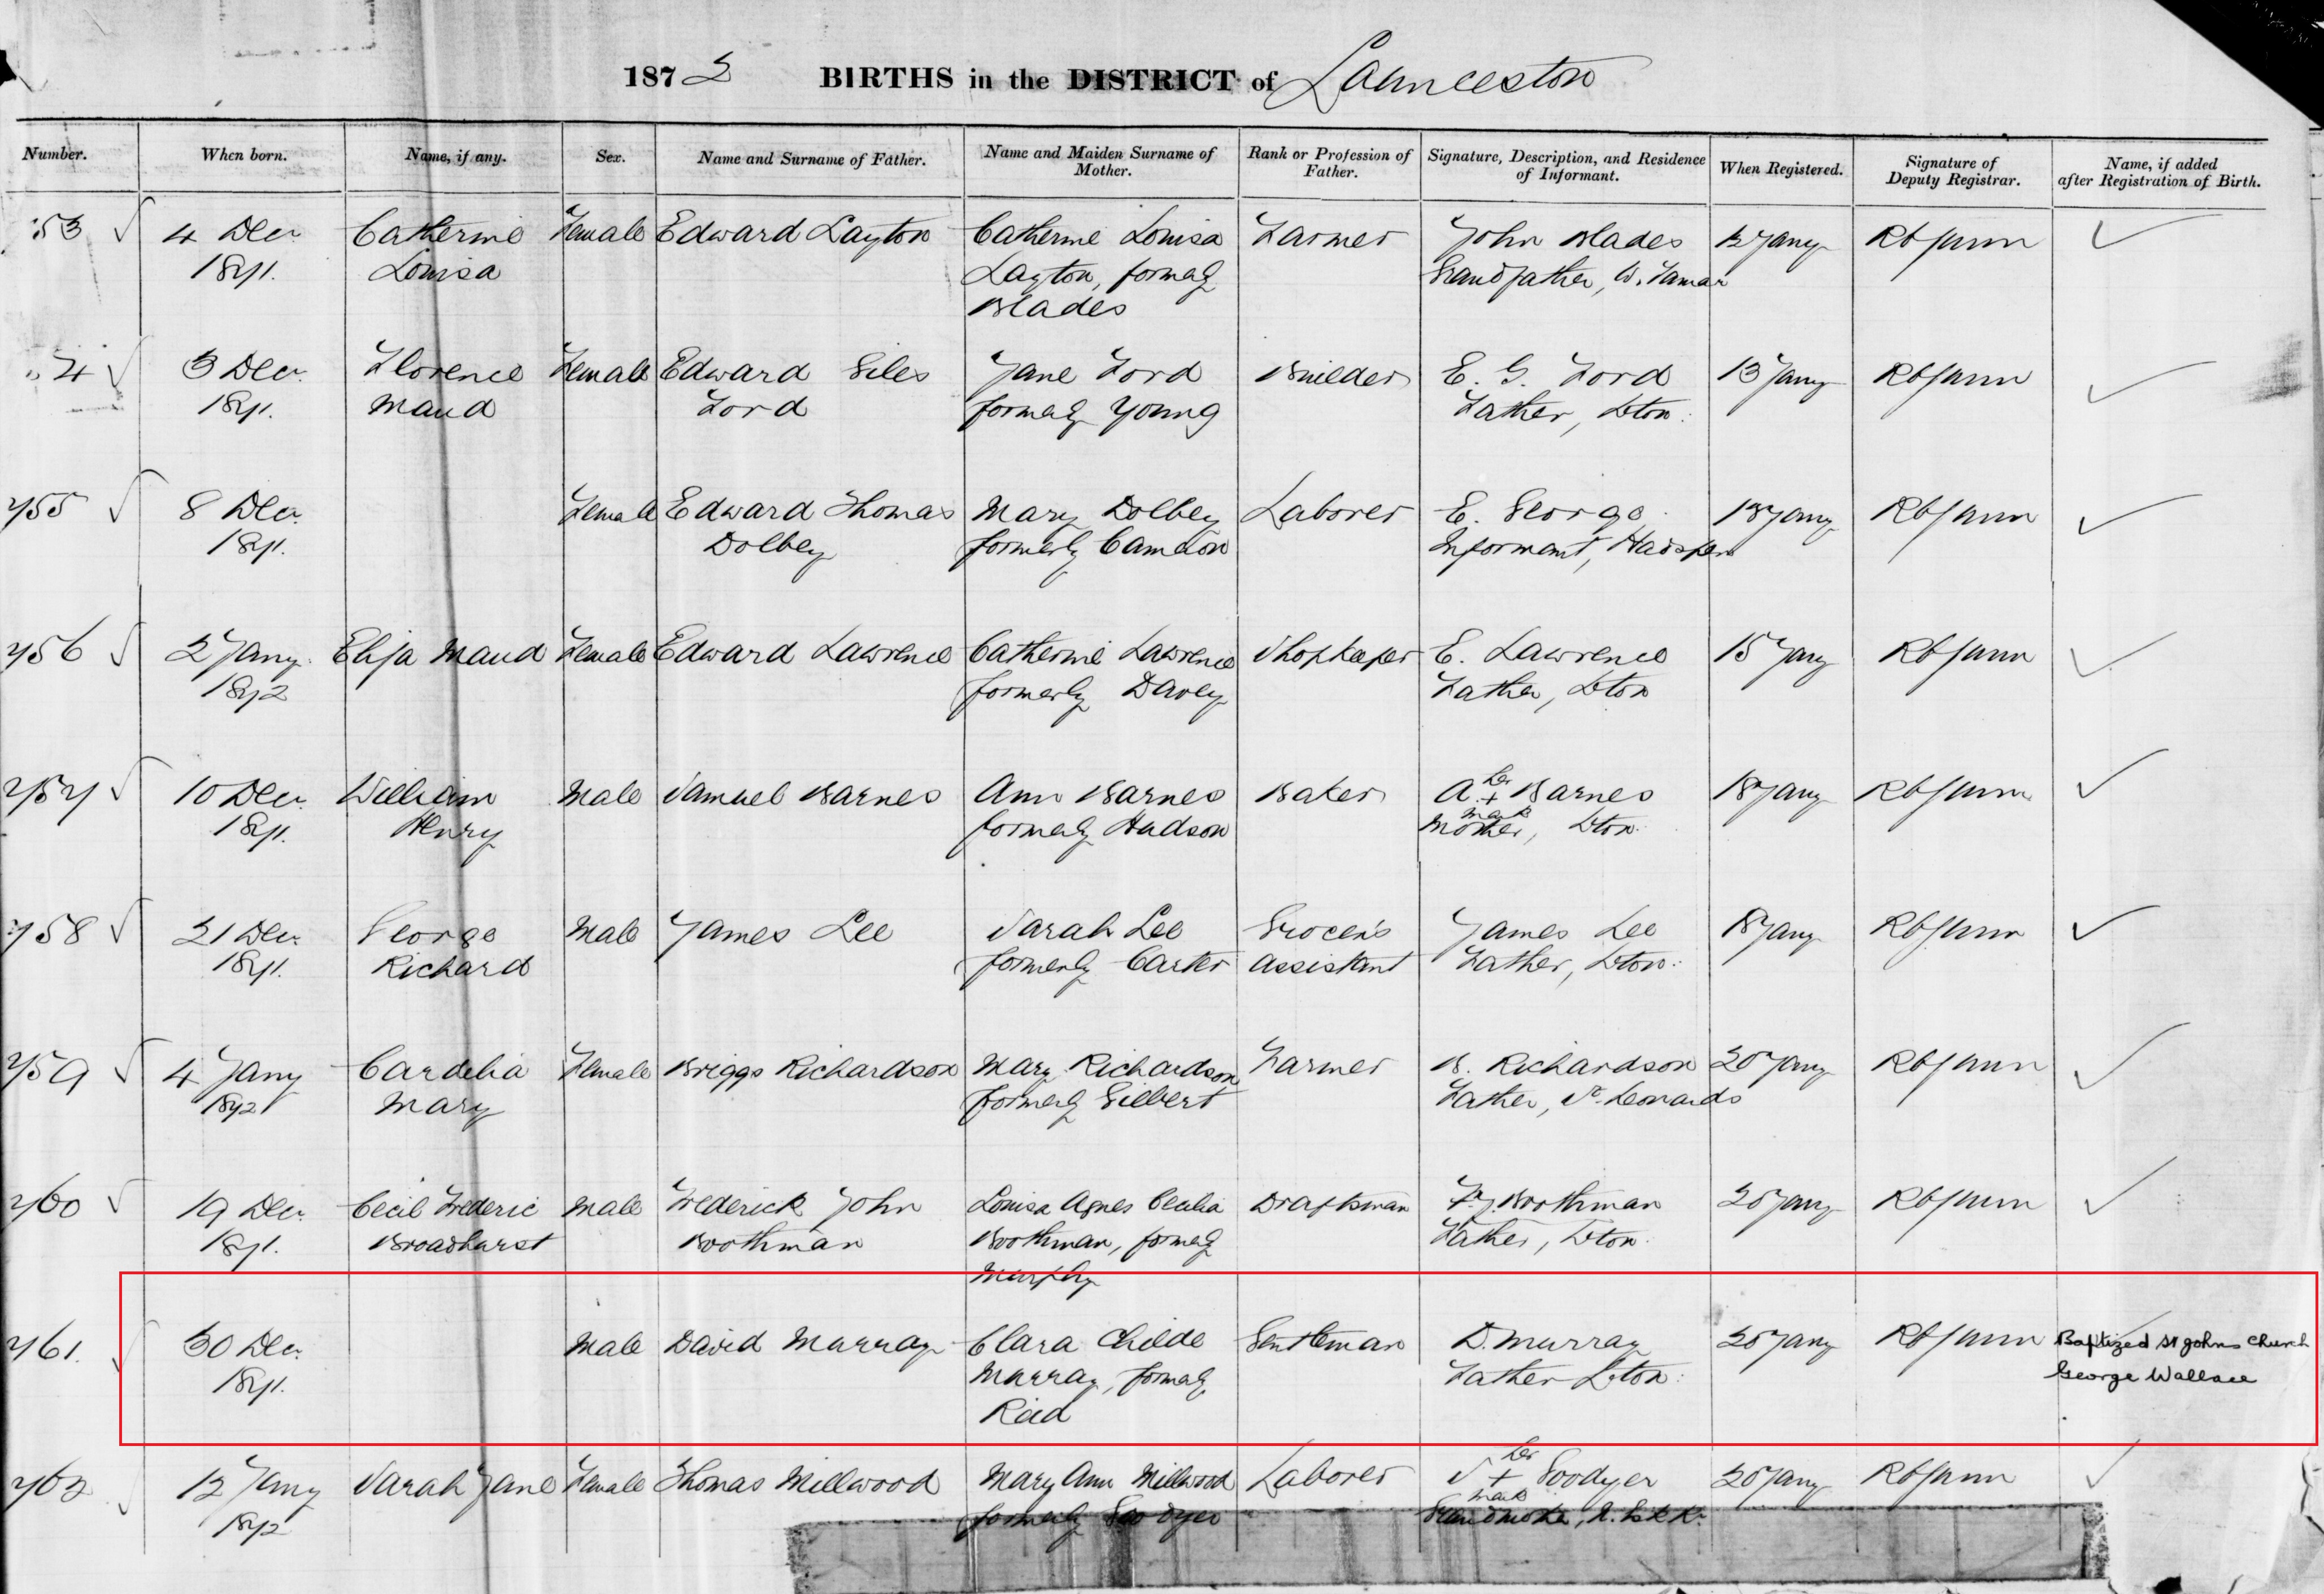 1872 BIRTHS in the DISTRICT of Launceston
Number. When born. Name, if any. Sex. Name and Surname of Father. Name and Maiden Surname of Mother. Rank or Profession of Father. Signature, Description, and Residence of Informant. When Registered. Signature of Deputy Registrar. Name, if added after Registration of Birth.
53 4 Decr Catherine Female Edward Layton Catherine Louisa Farmer John Blades 12 Jany
1871. Louisa Layton, formerly Grandfather, W. Tamar
Blades
3 Decr. Florence Female Edward Giles Jane Ford Builder E. G. Ford 13 Jany
1871. Maud Ford formerly Young Father, Lton.
755 8 Decr. Female Edward Thomas Mary Dolbey Laborer E. George, 13 Jany
1871. Dolbey formerly Cameron Informant, Hadspen
756 2 Jany. Eliza Maud Female Edward Lawrence Catherine Lawrence Shopkeeper E. Lawrence 15 Jany
1872 formerly Davey Father, Lton
757 10 Decr. William Male Samuel Barnes Ann Barnes Baker A. her + Barnes 18 Jany
1871. Henry formerly Hudson mark Mother, Lton.
758 21 Decr. George Male James Lee Sarah Lee Grocer's James Lee 18 Jany
1871. Richard formerly Carter Assistant Father, Lton.
759 4 Jany Cardelia Female Briggs Richardson Mary Richardson Farmer B. Richardson 20 Jany
1872 Mary formerly Gilbert Father, St. Leonards
760 19 Decr. Cecil Frederic Male Frederick John Louisa Agnes Cecilia Draftsman F. J. Boothman 20 Jany
1871. Broadhurst Boothman Boothman, formerly Father, Lton.
Murphy
761. 30 Decr. Male David Murray Clara Childe Gentleman D. Murray 20 Jany Baptized St Johns Church
1871. Murray, formerly Father Lton. George Wallace
Reid
762 12 Jany Sarah Jane Female Thomas Millwood Mary Ann Millwood Laborer S her + Goodyer 20 Jany
1872 formerly Goodyer mark Grandmother,